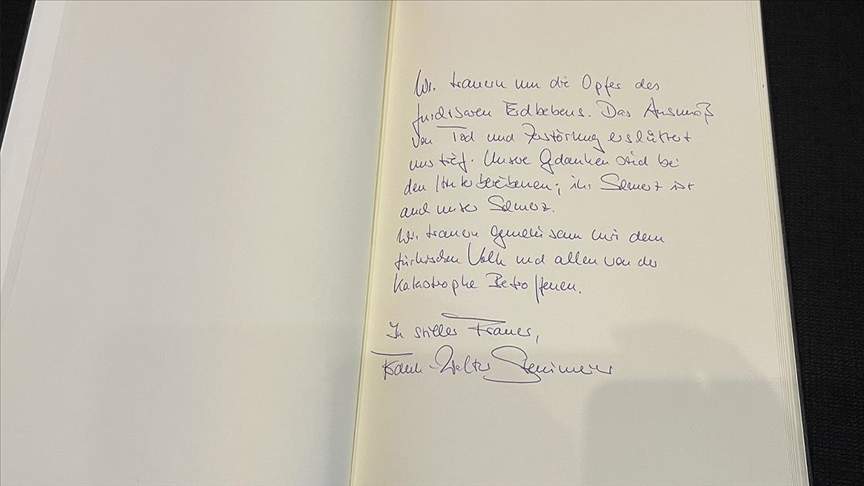 Wir trauern um die Opfer des
furchtbaren Erdbebens. Das Ausmaß
von Tod und Zerstörung erschüttert
uns tief. Unsere Gedanken sind bei
den Hinterbliebenen; ihr Schmerz ist
auch unser Schmerz.
Wir trauern gemeinsam mit dem
türkischen Volk und allen von der
Katastrophe Betroffenen.
In stiller Trauer,
Frank-Walter Steinmeier